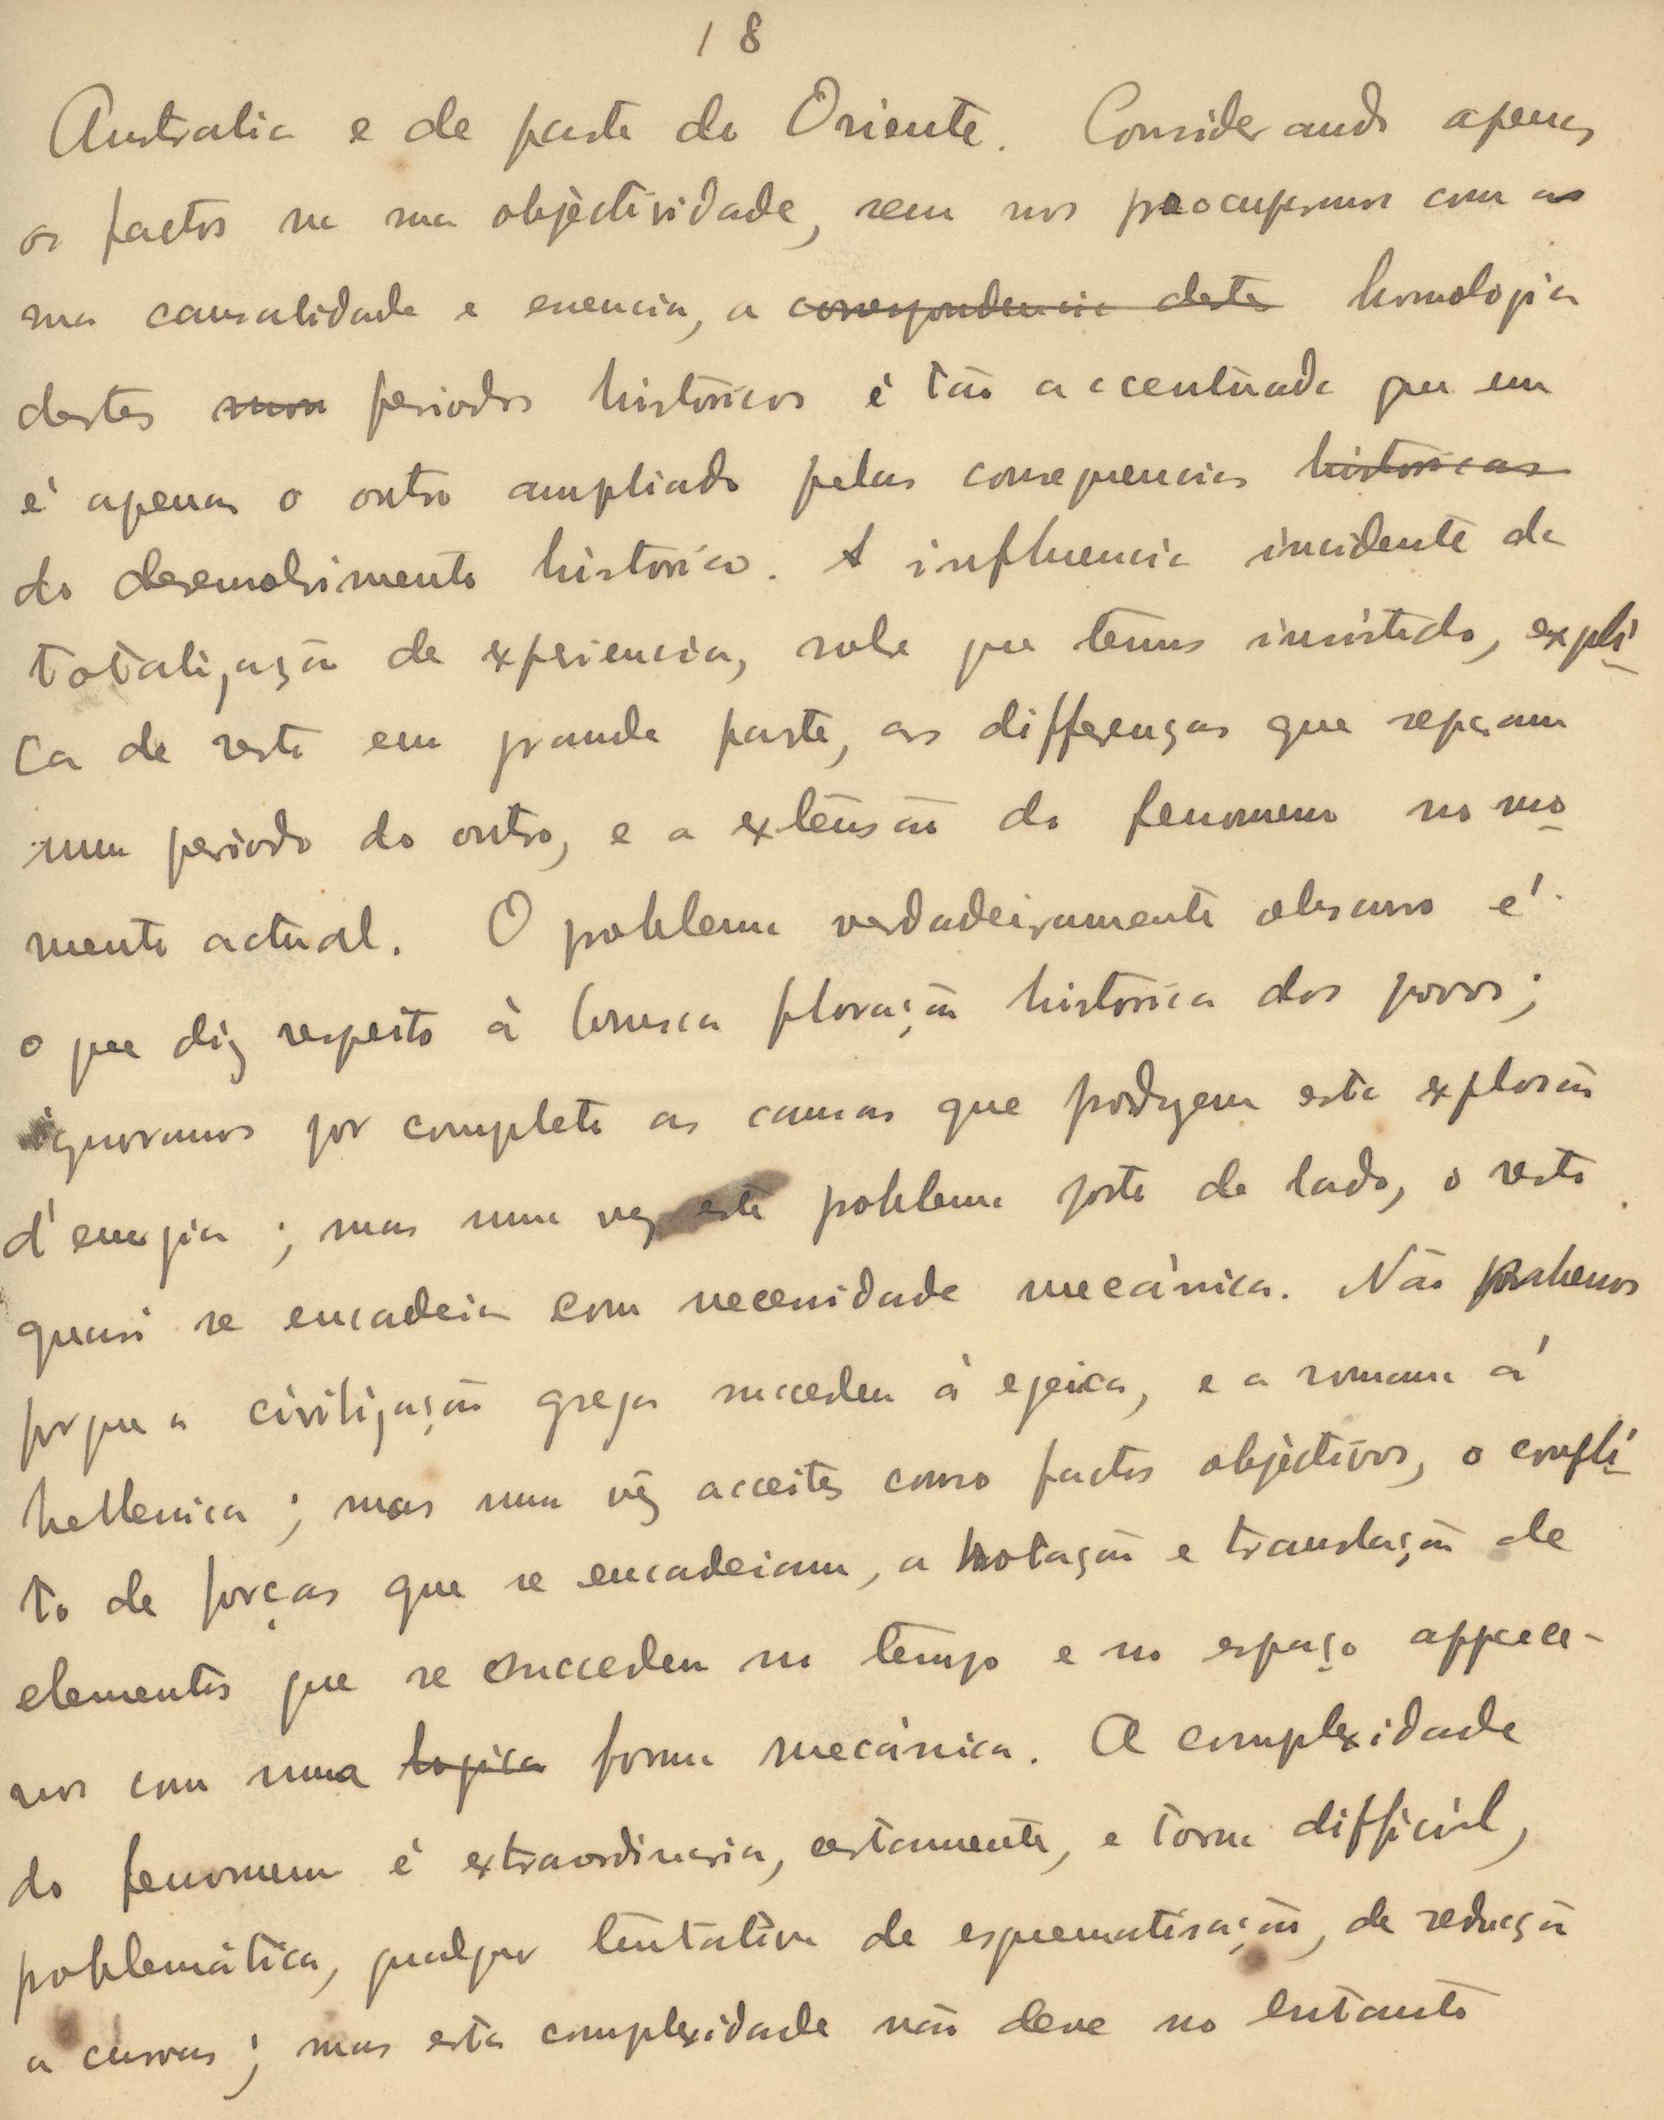 18
Australia e de parte do Oriente. Considerando apenas
os factos na sua objèctividade, sem nos preocuparmos com a
sua causalidade e essencia, a correspondencia deste homologia
destes periodos históricos é tão accentuada que um
é apenas o outro ampliado pelas consequencias historicas
do desenvolvimento historico. A influencia incidente da
totalização de experiencia, sobre que temos insistido, expli-
ca de resto em grande parte, as differenças que separam
um periodo do outro, e a extensão do fenomeno no mo-
mento actual. O problema verdadeiramente obscuro é
o que diz respeito à brusca floração historica dos povos;
ignoramos por completo as causas que produzem esta explosão
d'energia; mas uma vez este problema posto de lado, o resto
quasi se encadeia com necessidade mecánica. Não sabemos
porque a civilização grega succedeu à egeica, e a romana á
hellenica; mas uma vêz acceites como factos objèctivos, o confli-
to de forças que se encadeiam, a rotação e translação de
elementos que se succedem no tempo e no espaço apparece-
nos com uma logica forma mecánica. A complexidade
do fenomeno é extraordinaria, certamente, e torna difficil,
problemática, qualquer tentativa de esquematisação, de redução
a curvas; mas esta complexidade não deve no entanto